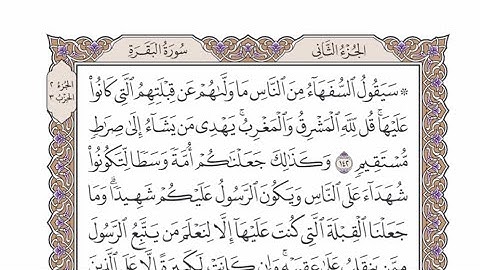 الجُزْءُ الثَّانِي
سُورَةُ البَقَرَةِ
الجزء ٢
الحزب ٣
۞ سَيَقُولُ ٱلسُّفَهَآءُ مِنَ ٱلنَّاسِ مَا وَلَّىٰهُمْ عَن قِبْلَتِهِمُ ٱلَّتِى كَانُوا۟
عَلَيْهَا ۚ قُل لِّلَّهِ ٱلْمَشْرِقُ وَٱلْمَغْرِبُ ۚ يَهْدِى مَن يَشَآءُ إِلَىٰ صِرَٰطٍ
مُّسْتَقِيمٍ ١٤٢ وَكَذَٰلِكَ جَعَلْنَٰكُمْ أُمَّةً وَسَطًا لِّتَكُونُوا۟
شُهَدَآءَ عَلَى ٱلنَّاسِ وَيَكُونَ ٱلرَّسُولُ عَلَيْكُمْ شَهِيدًا ۗ وَمَا
جَعَلْنَا ٱلْقِبْلَةَ ٱلَّتِى كُنتَ عَلَيْهَآ إِلَّا لِنَعْلَمَ مَن يَتَّبِعُ ٱلرَّسُولَ
مِمَّن يَنقَلِبُ عَلَىٰ عَقِبَيْهِ ۚ وَإِن كَانَتْ لَكَبِيرَةً إِلَّا عَلَى ٱلَّذِينَ